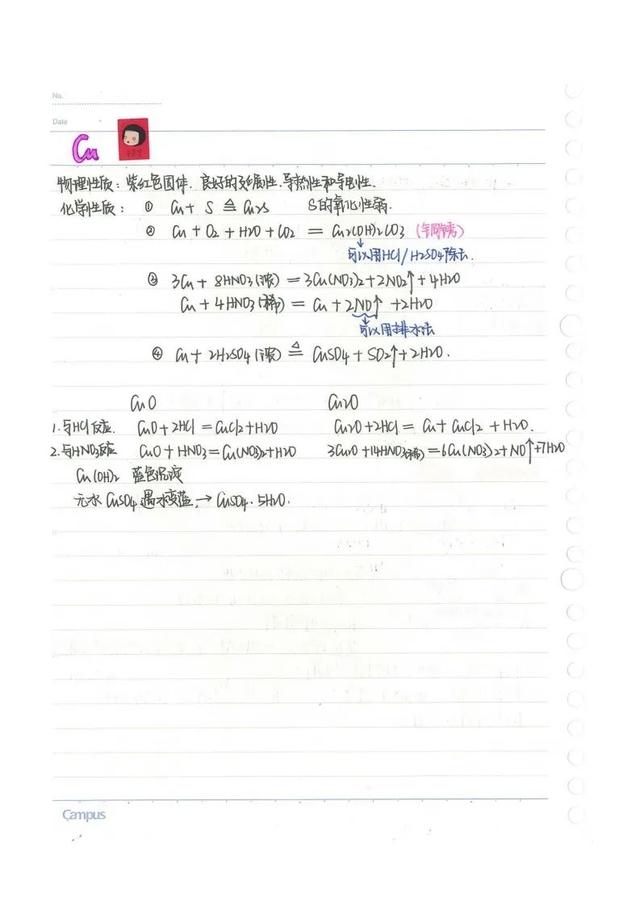 No.
Date
Cu
物理性质：紫红色固体．良好的延展性．导热性和导电性．
化学性质：① Cu + S ≜ Cu2S S的氧化性弱.
② Cu + O2 + H2O + CO2 = Cu2(OH)2CO3 (铜绿)
可以用HCl/H2SO4除去.
③ 3Cu + 8HNO3(浓) = 3Cu(NO3)2 + 2NO2↑ + 4H2O
Cu + 4HNO3(稀) = Cu + 2NO↑ + 2H2O
可以用排水法
④ Cu + 2H2SO4(浓) ≜ CuSO4 + SO2↑ + 2H2O.
CuO Cu2O
1.与HCl反应 CuO + 2HCl = CuCl2 + H2O Cu2O + 2HCl = Cu + CuCl2 + H2O.
2.与HNO3反应 CuO + HNO3 = Cu(NO3)2 + H2O 3Cu2O + 14HNO3(稀) = 6Cu(NO3)2 + NO↑ + 7H2O
Cu(OH)2 蓝色沉淀
无水CuSO4遇水变蓝 → CuSO4·5H2O.
Campus